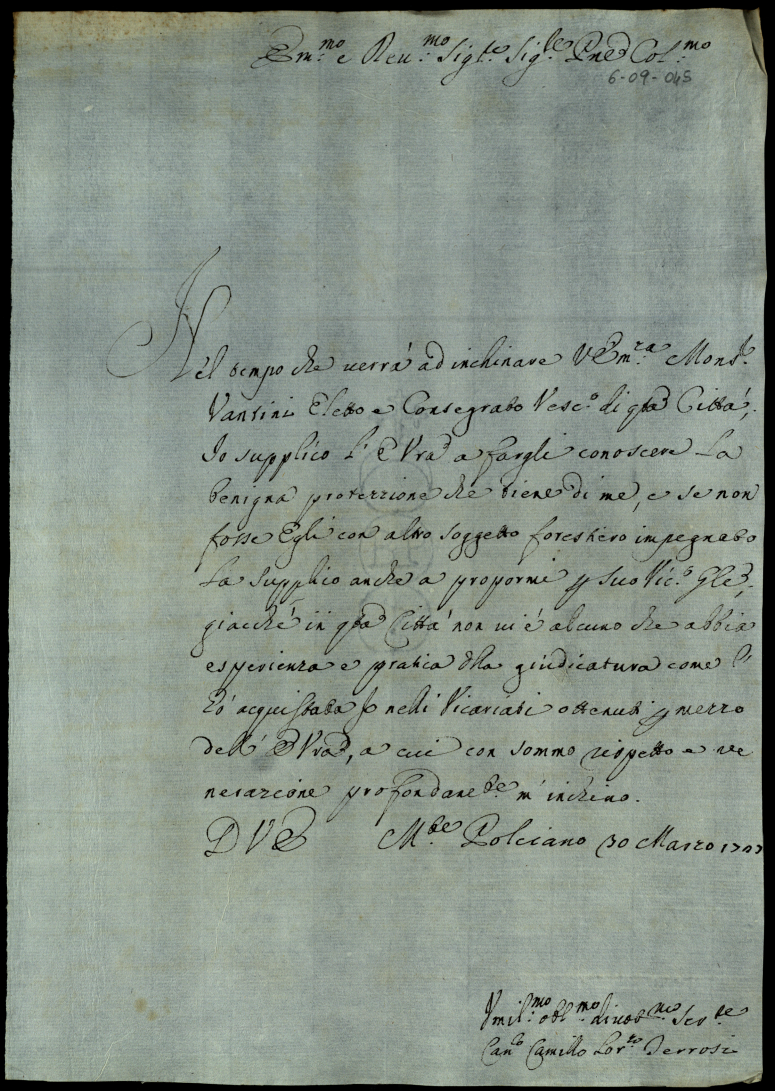 Em.mo e Reu.mo Sig.re Sig.re Pne Col.mo
6-09-045
Nel tempo che uerrá ad inchinare VEm.ra Mons.r
Vantini Eletto e Consegrato Vesc.o di qta Cittá,
Io supplico l'E Vra a fargli conoscere la
benigna protezzione che tiene di me, e se non
fosse Egli con altro soggetto forestiero impegnato
la supplico anche a propormi p suo Vic.o Gle,
giacché in qta Cittá non ui é alcuno che abbia
esperienza e pratica dlla giudicatura come l'
hó acquistata Io nelli Vicariati ottenuti p mezzo
dell' E Vra, a cui con sommo rispetto e ue
nerazione profondane.te m' inchino.
D V E M.te Polciano 30 Marzo
Vmil.mo obl.mo diuot.mo Ser.re
Can.co Camillo Lor.zo